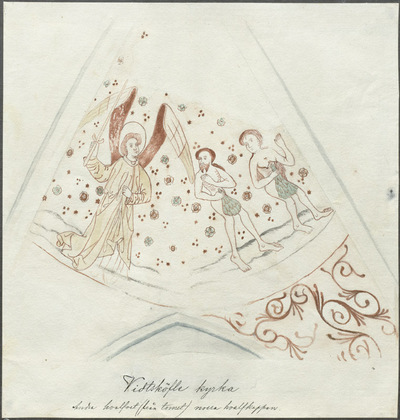 Vidtsköfle kyrka
Andra hvalfvet (från tornet) norra hvalfkappan